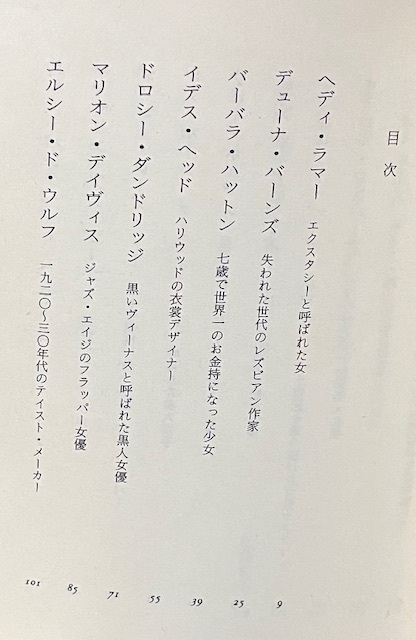 目次
ヘディ・ラマー エクスタシーと呼ばれた女 9
デューナ・バーンズ 失われた世代のレズビアン作家 25
バーバラ・ハットン 七歳で世界一のお金持になった少女 39
イデス・ヘッド ハリウッドの衣裳デザイナー 55
ドロシー・ダンドリッジ 黒いヴィーナスと呼ばれた黒人女優 71
マリオン・デイヴィス ジャズ・エイジのフラッパー女優 85
エルシー・ド・ウルフ 一九二〇〜三〇年代のテイスト・メーカー 101